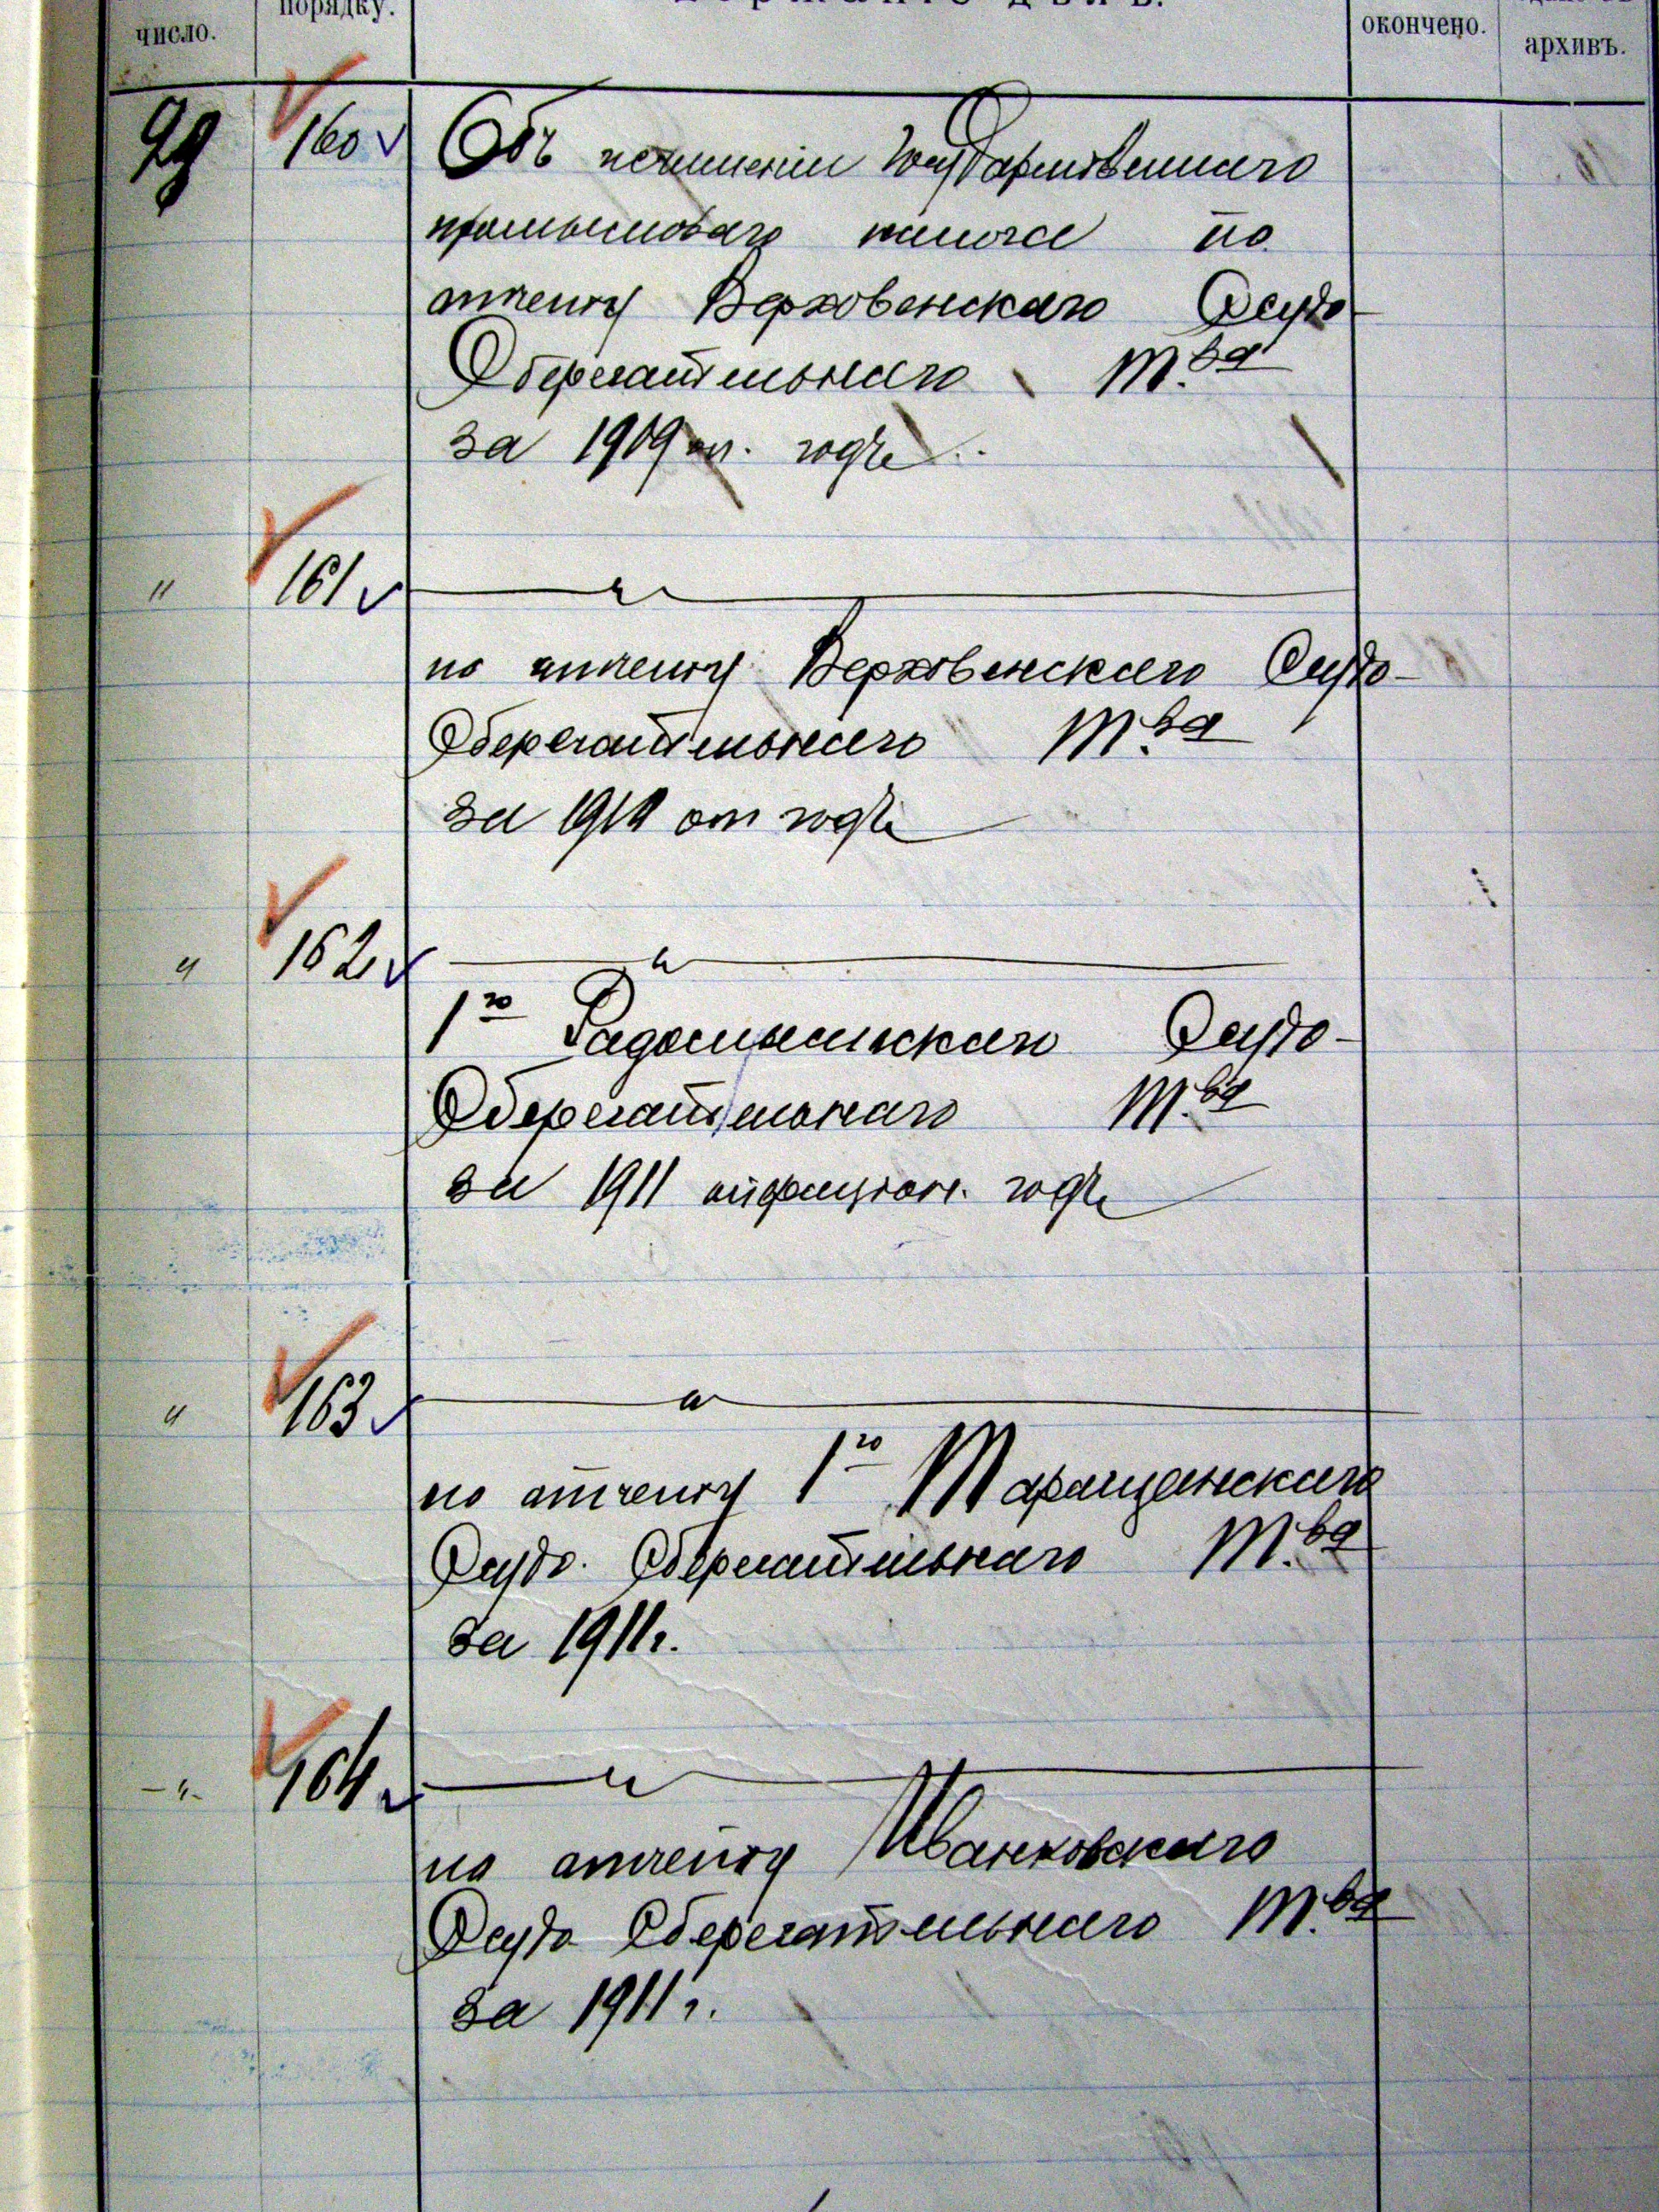 число.
порядку.
окончено.
архивъ.
29 160 Объ исчисленіи Государственнаго
промысловаго налога по
отчету Верховенскаго Ссудо-
Сберегательнаго Т.ва
за 1909 оп. годъ
" 161 "
по отчету Верховенскаго Ссудо-
Сберегательнаго Т.ва
за 1910 оп годъ
" 162 "
1го Радомысльскаго Ссудо-
Сберегательнаго Т.ва
за 1911 операціон. годъ
" 163 "
по отчету 1го Таращанскаго
Ссудо. Сберегательнаго Т.ва
за 1911 г.
-"- 164 "
по отчету Иванковскаго
Ссудо Сберегательнаго Т.ва
за 1911 г.